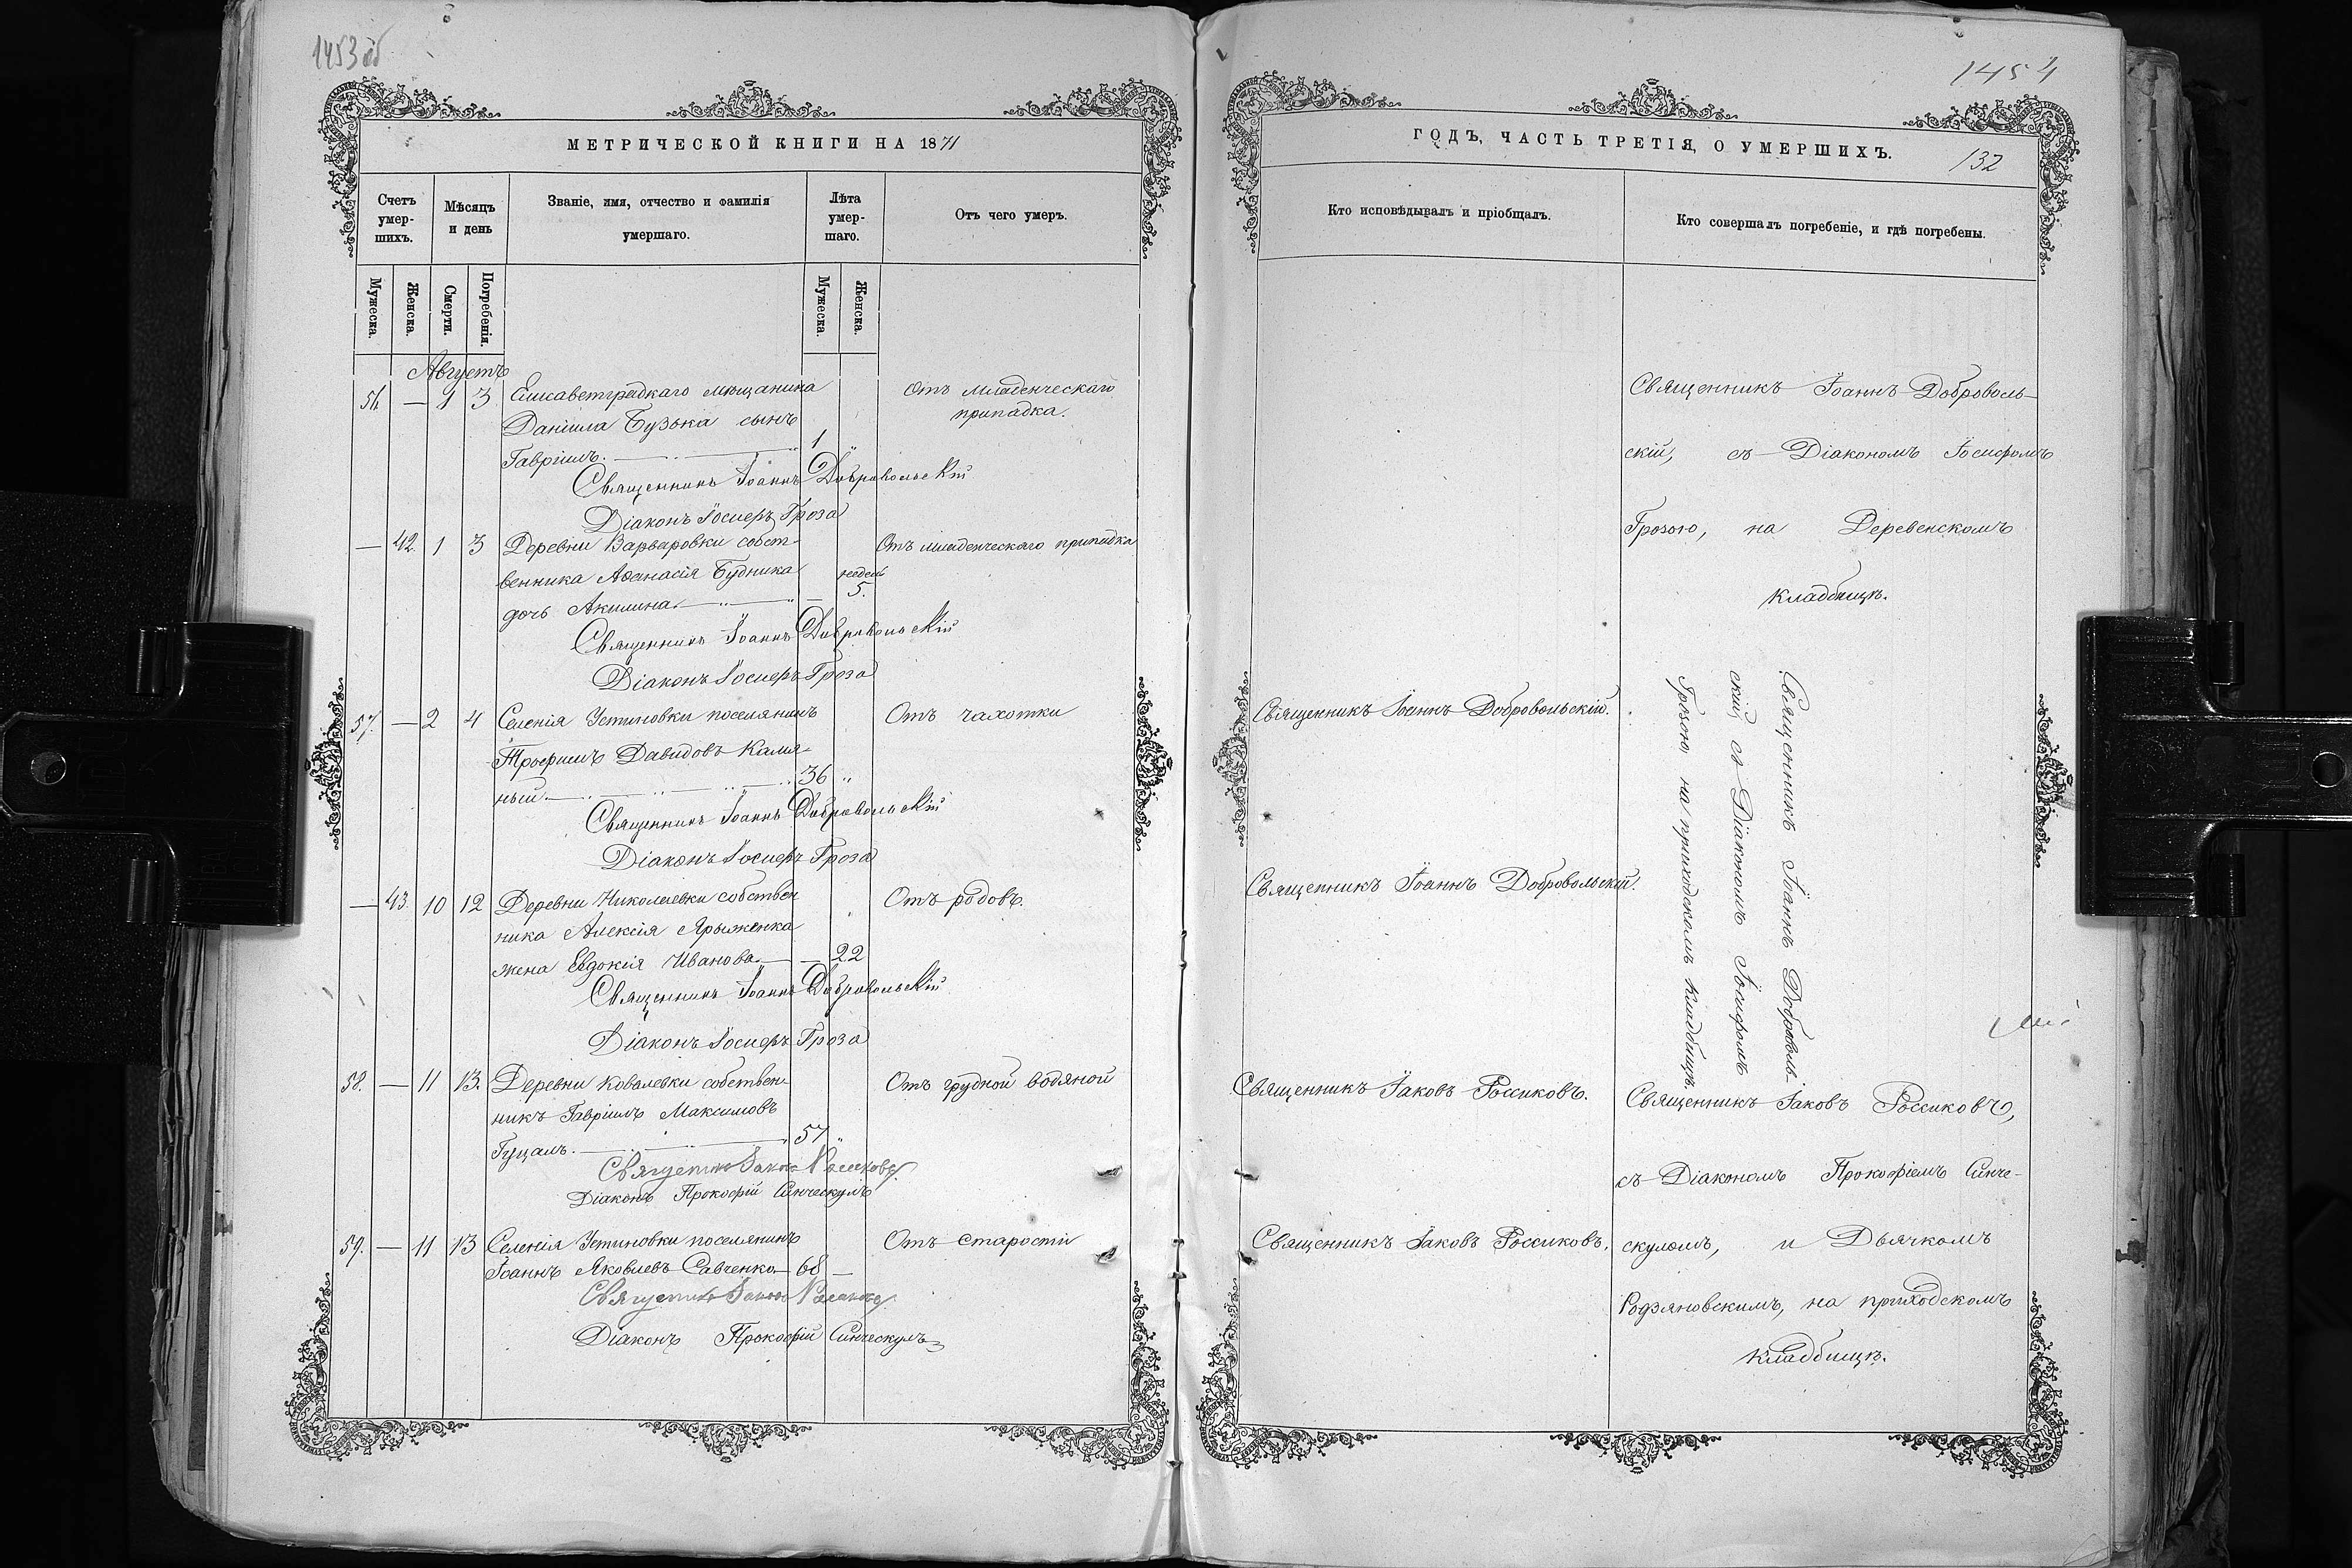 1453 об
МЕТРИЧЕСКОЙ КНИГИ НА 1871
Счетъ умер-шихъ.
Мѣсяцъ и день
Званіе, имя, отчество и фамилія умершаго.
Лѣта умер-шаго.
Отъ чего умеръ.
Мужеска.
Женска.
Смерти.
Погребенія.
Мужеска.
Женска.
Августъ
56. — 1 3 Елисаветградкаго мѣщанина Отъ младенческаго
Даніила Бузька сынъ припадка.
Гавріилъ. 1 "
Священникъ Іоаннъ Добровольскій
Діаконъ Іосифъ Гроза
— 42. 1 3 Деревни Варваровки собст- Отъ младенческаго припадка
венника Аѳанасія Будника недель
дочь Акилина. — 5.
Священникъ Іоаннъ Добровольскій
Діаконъ Іосифъ Гроза
57. — 2 4 Селенія Устиновки поселянинъ Отъ чахотки
Трофимъ Давидовъ Камя-
ный. 36 "
Священникъ Іоаннъ Добровольскій
Діаконъ Іосифъ Гроза
— 43. 10 12 Деревни Николаевки собствен Отъ родовъ.
ника Алексія Ярыженка
жена Евдокія Иванова. — 22
Священникъ Іоаннъ Добровольскій
Діаконъ Іосифъ Гроза
58. — 11 13. Деревни Ковалевки собствен- Отъ грудной водяной
никъ Гавріилъ Максимовъ
Гуцалъ. 57 "
Священникъ Іаковъ Россиковъ
Діаконъ Прокофій Синческулъ
59. — 11 13 Селенія Устиновки поселянинъ Отъ старости
Іоаннъ Яковлевъ Савченко — 68 —
Священникъ Іаковъ Россиковъ
Діаконъ Прокофій Синческулъ
1454
ГОДЪ, ЧАСТЬ ТРЕТІЯ, О УМЕРШИХЪ.
132
Кто исповѣдывалъ и пріобщалъ.
Кто совершалъ погребеніе, и гдѣ погребены.
Священникъ Іоаннъ Доброволь-
скій, съ Діакономъ Іосифомъ
Грозою, на Деревенскомъ
кладбищѣ.
Священникъ Іоаннъ Добровольскій.
Священникъ Іоаннъ Добровольскій.
Священникъ Іоаннъ Доброволь-
скій, съ Діакономъ Іосифомъ
Грозою, на приходскомъ кладбищѣ.
Священникъ Іаковъ Россиковъ.
Священникъ Іаковъ Россиковъ,
съ Діакономъ Прокофіемъ Синче-
Священникъ Іаковъ Россиковъ.
скуломъ, и Дьячкомъ
Родзяновскимъ, на приходскомъ
кладбищѣ.